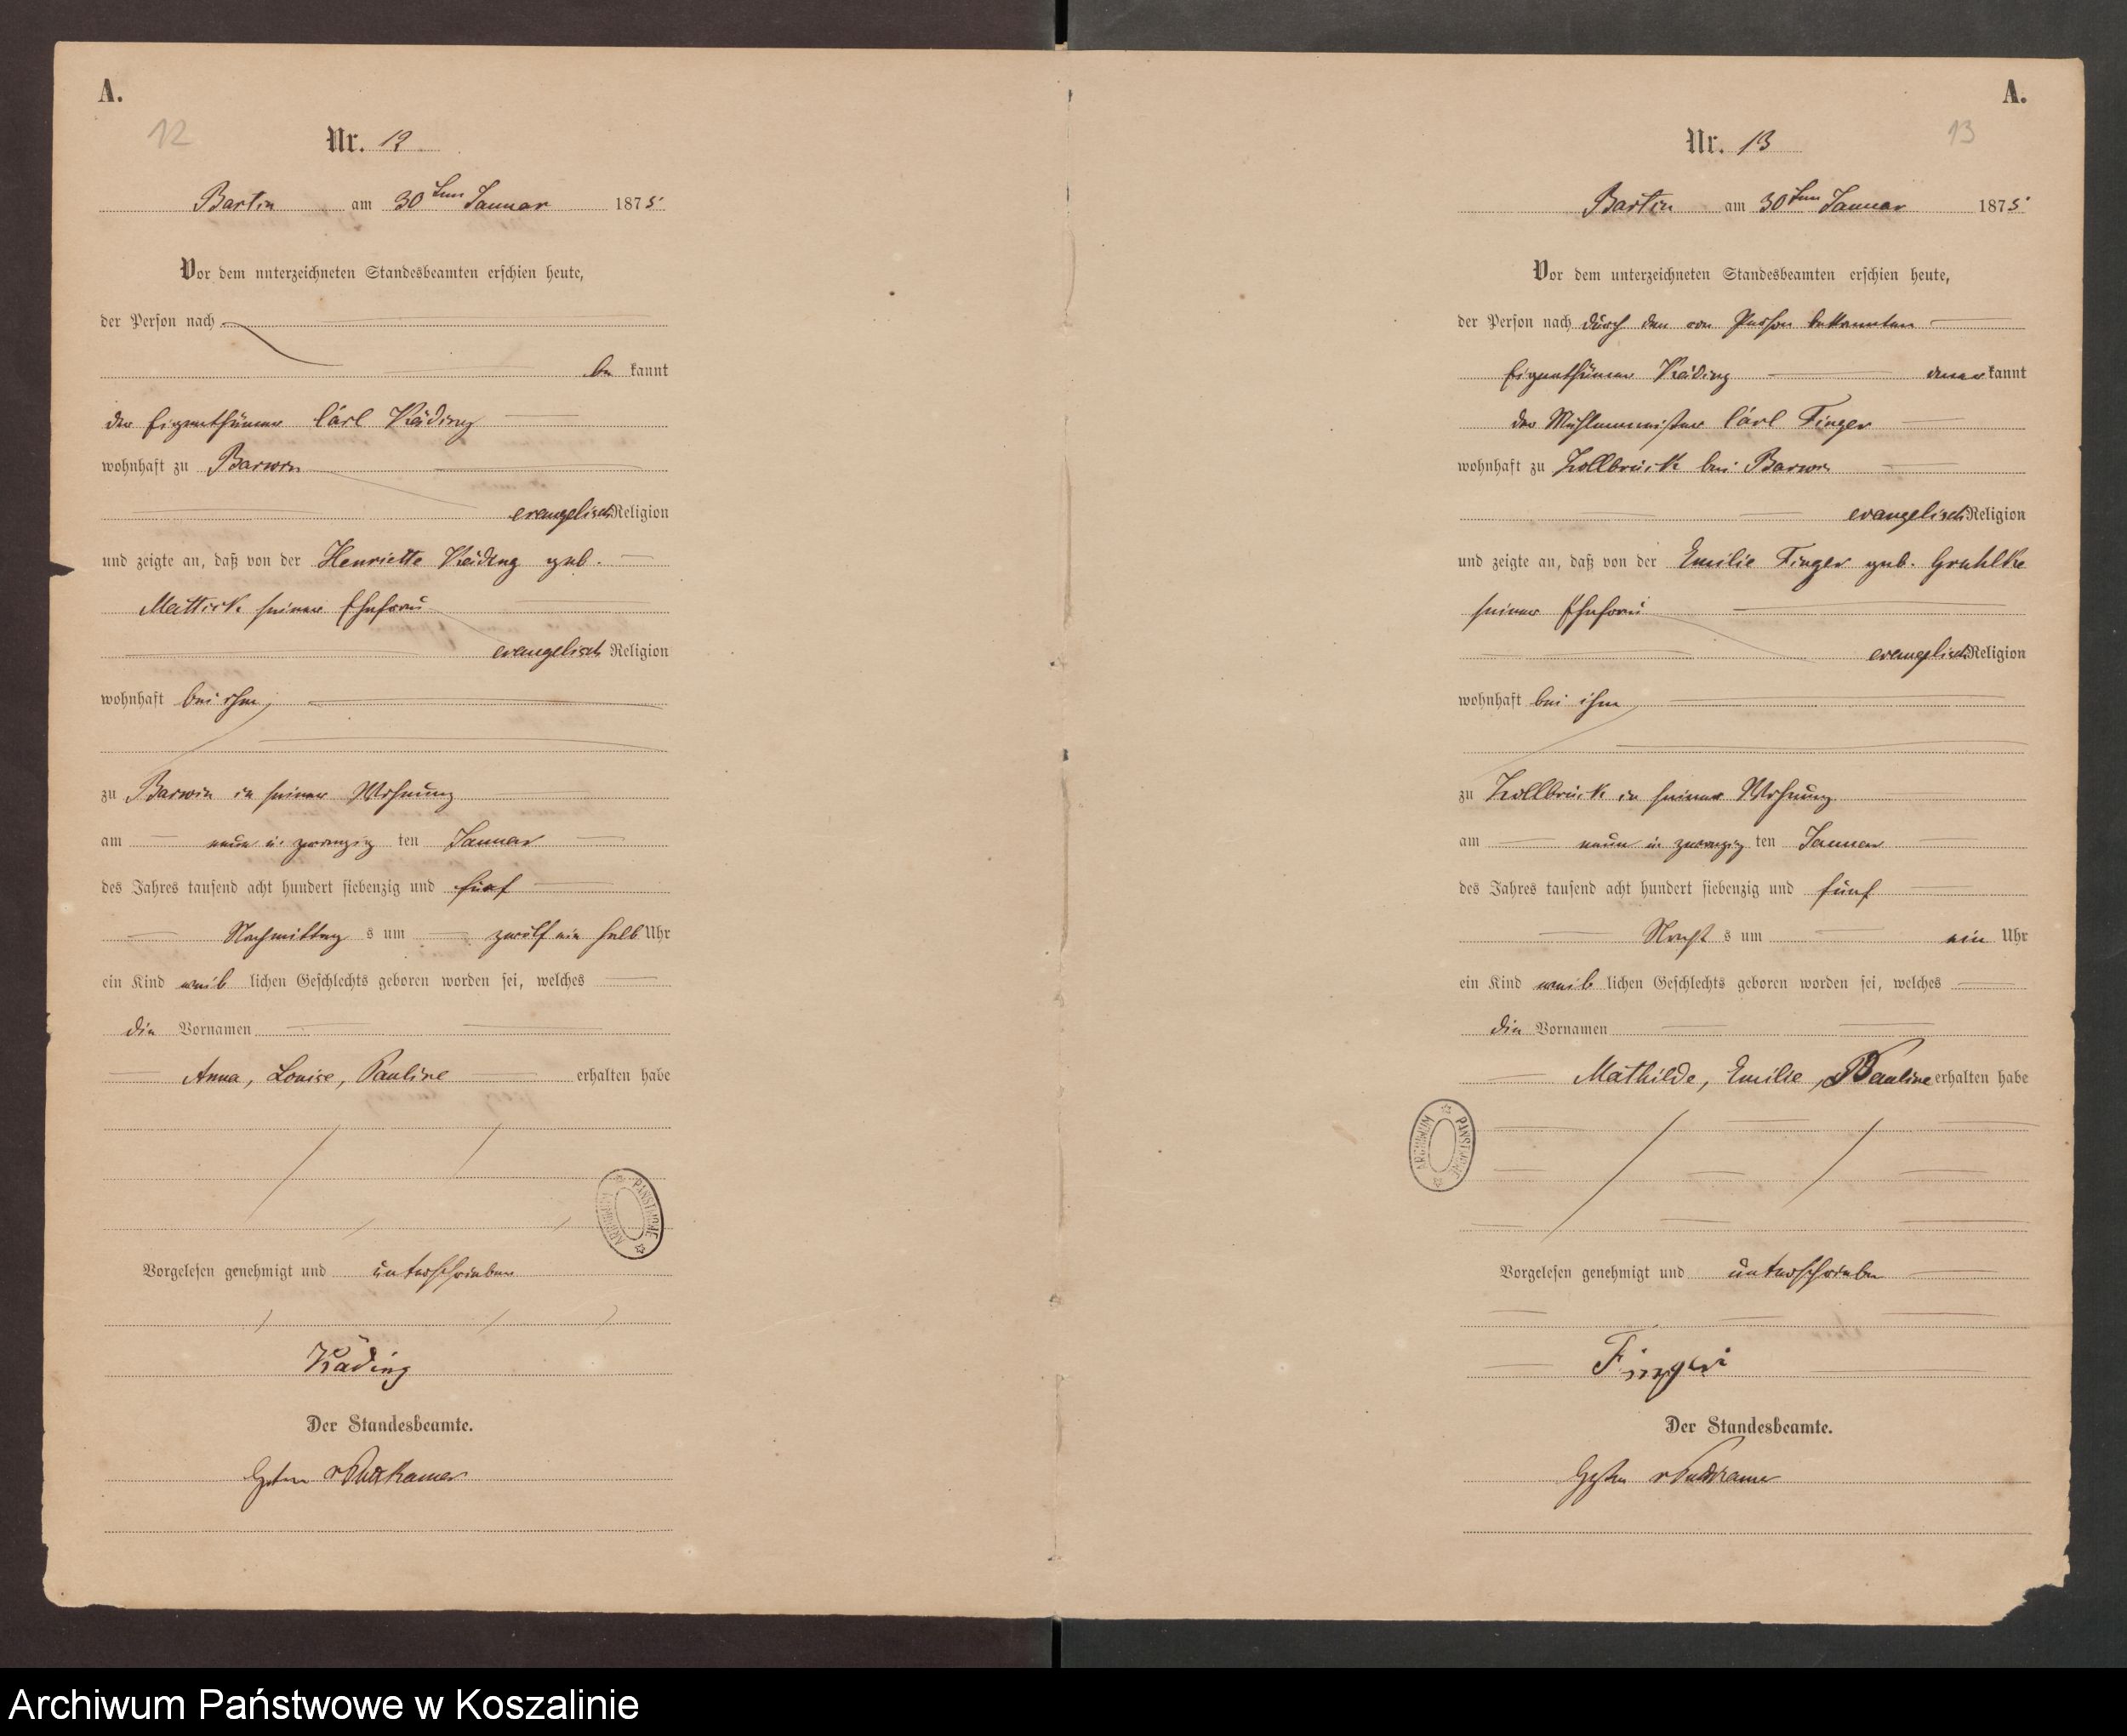 A.
12
Nr. 12
Bartin am 30ten Januar 1875
Vor dem unterzeichneten Standesbeamten erschien heute,
der Person nach
be kannt
der Eigenthümer Carl Käding
wohnhaft zu Barwin
evangelisch Religion
und zeigte an, daß von der Henriette Käding geb.
Mattick seiner Ehefrau
evangelisch Religion
wohnhaft bei ihm,
zu Barwin in seiner Wohnung
am neun u. zwanzig ten Januar
des Jahres tausend acht hundert siebenzig und fünf
Nachmittag s um zwölf ein halb Uhr
ein Kind weib lichen Geschlechts geboren worden sei, welches
die Vornamen
Anna, Louise, Pauline erhalten habe
ARCHIWUM PAŃSTWOWE
Vorgelesen genehmigt und unterschrieben
Käding
Der Standesbeamte.
v Puttkamer
A.
13
Nr. 13
Bartin am 30ten Januar 1875
Vor dem unterzeichneten Standesbeamten erschien heute,
der Person nach durch den von Person bekannten
Eigenthümer Käding aner kannt
der Mühlenmeister Carl Finger
wohnhaft zu Zollbrück bei Barwin
evangelisch Religion
und zeigte an, daß von der Emilie Finger geb. Gruhlke
seiner Ehefrau
evangelisch Religion
wohnhaft bei ihm,
zu Zollbrück in seiner Wohnung
am neun u. zwanzig ten Januar
des Jahres tausend acht hundert siebenzig und fünf
Nacht s um ein Uhr
ein Kind weib lichen Geschlechts geboren worden sei, welches
die Vornamen
Mathilde, Emilie, Pauline erhalten habe
ARCHIWUM PAŃSTWOWE
Vorgelesen genehmigt und unterschrieben
Finger
Der Standesbeamte.
v Puttkamer
Archiwum Państwowe w Koszalinie